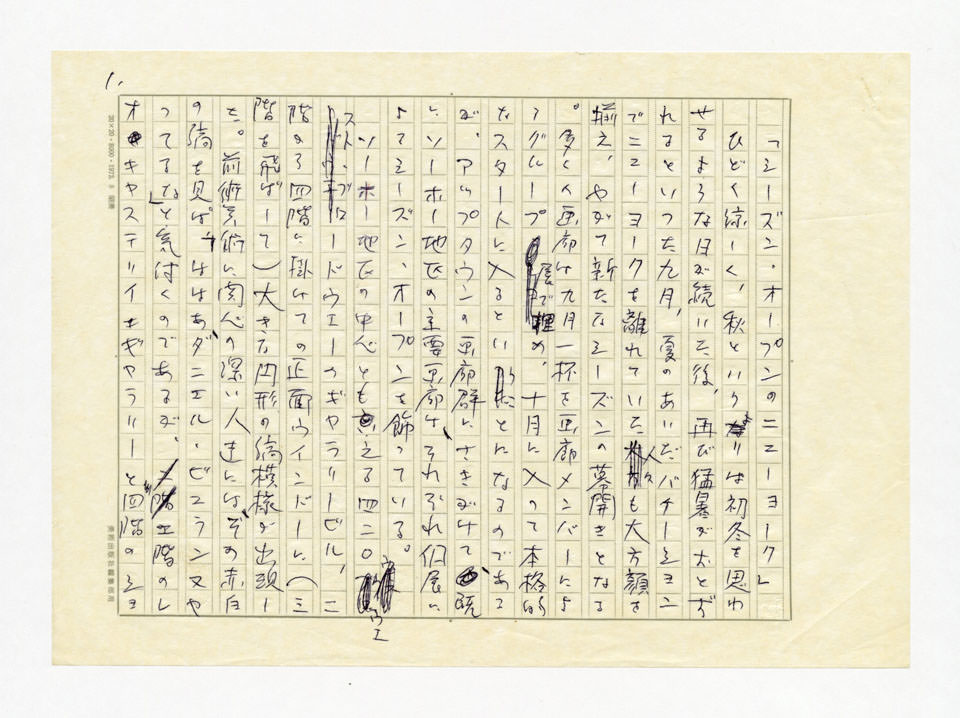 1.
「シーズン・オープンのニューヨーク」
ひどく涼しく、秋というよりは初冬を思わ
せるような日が続いた後、再び猛暑がおとず
れるといった九月、夏のあいだバケーション
でニューヨークを離れていた人々も大方顔を
揃え、やがて新たなシーズンの幕開きとなる
。多くの画廊は九月一杯を画廊メンバーによ
るグループ展で め、十月に入って本格的
なスタートに入るといったことになるのである
が、アップタウンの画廊群にさきがけて、既
に、ソーホー地区の主要画廊は、それぞれ個展に
よってシーズン、オープンを飾っている。
ソーホー地区の中心とも言える四二〇ウエ
スト・ブロードウエーのギャラリービル、二
階から四階に掛けての正面ウインドーに(三
階を飛ばして)大きな円形の縞模様が出現し
た。前衛美術に関心の深い人達には、その赤白
の縞を見れば、「ははあダニエル・ビュラン又や
ってるな」と気付くのであるが、二階のレ
オ・キャステリイギャラリーと四階のショ